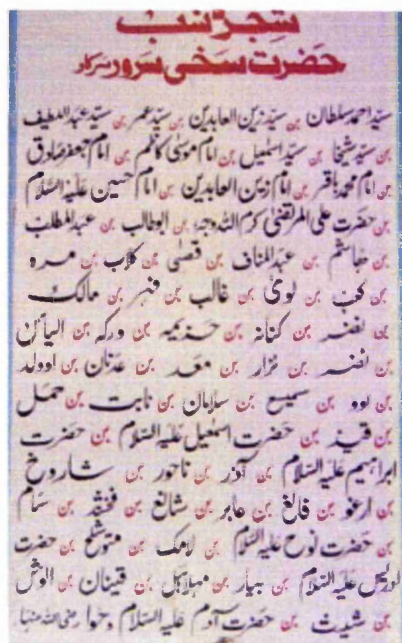 شجرہ نسب
حضرت سخی سرور سرکار
سید احمد سلطان بن سید زین العابدین بن سید عمر بن سید عبد اللطیف
بن سید شیخا بن سید اسمٰعیل بن امام موسیٰ کاظم بن امام جعفر صادق
بن امام محمد باقر بن امام زین العابدین بن امام حسین علیہ السلام
بن حضرت علی المرتضیٰ کرم اللہ وجہہ بن ابو طالب بن عبد المطلب
بن ھاشم بن عبد المناف بن قصٰی بن کلاب بن مرہ
بن کعب بن لوئ بن غالب بن فہر بن مالک
بن نضر بن کنانہ بن خذیمہ بن ورکہ بن الیاس
بن نضر بن نزار بن معد بن عدنان بن اوولد
بن لوو بن سمیع بن سلامان بن نابت بن حمل
بن قیذ بن حضرت اسمٰعیل علیہ السلام بن حضرت
ابراہیم علیہ السلام بن آذر بن ناحور بن شاروخ
بن ارعو بن فالغ بن عابر بن شالغ بن فخشد بن سام
بن حضرت نوح علیہ السلام بن لامک بن متوشلخ بن حضرت
ادریس علیہ السلام بن بیار بن مہلائل بن قینان بن انوش
بن شیث بن حضرت آدم علیہ السلام وحوا رضی اللہ عنہا